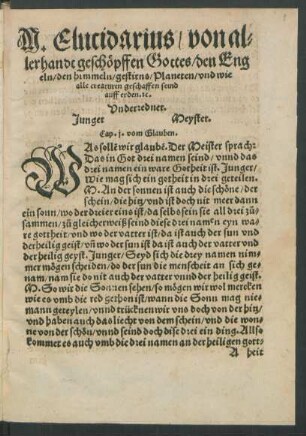 M. Elucidarius / von al-
lerhandt geschöpffen Gottes / den Eng
eln / den himmeln / gestirns / Planeten / vnd wie
alle creaturen geschaffen seind
auff erden. ꝛc.
Vnderredner.
Junger Meyster.
Cap. j. vom Glauben.
WAs solle wir glaubē. Der Meister sprach:
Das in Got drei namen seind / vnnd das
drei namen ein ware Gotheit ist. Junger /
Wie mag sich ein getheit in drei geteilen.
M. An der sonnen ist auch die schöne / der
schein / die hitz / vnd ist doch nit meer dann
ein sonn / wo der dreier eins ist / da selbs sein all drei zů
samen / zů gleicher weiß seind dise drei namen eyn wa-
re gottheit / vnd wo der vatter ist / da ist auch der sun vnd
der heilig geist / vň wo der sun ist da ist auch der vatter vnd
der heilig geyst. Junger / Seyd sich die drey namen nim-
mer mögen scheiden / do der sun die menscheit an sich ge-
nam / nam sie do nit auch der vatter vnnd der heilig geist.
M. So wir die Sonnen sehen / so mögen wir wol mercken
wie es vmb die red gethon ist / wann die Sonn mag nie-
mann geteylen / vnnd trücknen wir vns doch von der hitz /
vnd haben auch das liecht von dem schein / vnnd die won-
ne von der schön / vnnd seind doch dise drei ein ding. Also
kommet es auch vmb die drei namen an der heiligen gott-
A heit